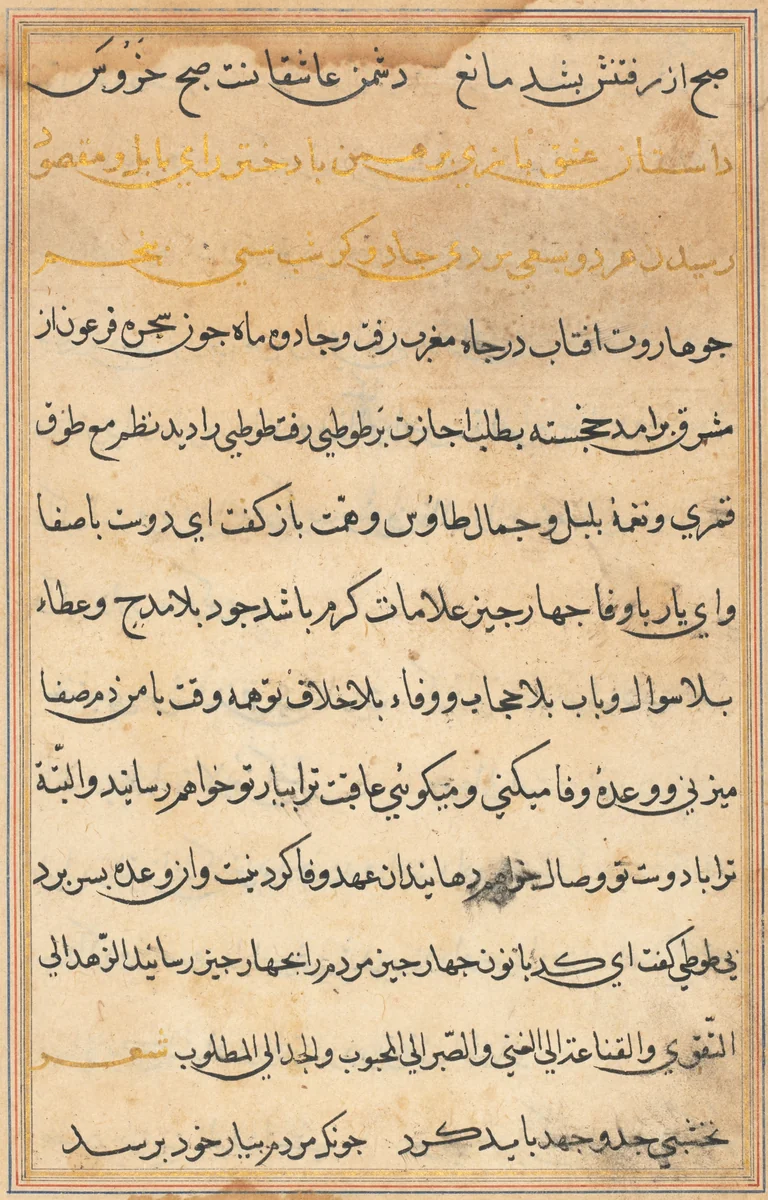 صبح از رفتنش بشد مانع دشمن عاشقانت صبح خَرُوسَ
داستان عشق بازی برهمن با دختر رای بابل و مقصود
رسیدن هر دو بسعی مردمی جادوکر شب سی پنجم
جو هاروت افتاب در جاه مغرب رفت و جادوه ماه جون سحره فرعون از
مشرق برامد خجسته بطلب اجازت بَر طوطیی رفت طوطیی را دید نظر مع طوق
قمري و نغمهٔ بلبل و جمال طاؤس و همّت باز کفت اي دوست با صفا
و اي یار با وفا جهار جیز علامات کرم باشد جود بلا مدح و عطاء
بلا سوال و باب بلا حجاب و وفاء بلا خلاف تو همه وقت با من دم صفا
میزني و وعدهٔ وفا میکني و میکوئي عاقبت ترا بیار تو خواهم رسانید و البتّة
ترا با دوست تو وصال خواهم دهانید ان عهد وفا کرد نیت و ان وعده بسر برد
ني طوطي کفت اي کدبانو ن جهار جیز مردم را بجهار جیز رسانید الزّهد الي
التّقوي و القناعة الي الغني و الصّبر الي المحبوب و الجد الي المطلوب شعر
نخشبي جد و جهد باید کرد جونکه مردم بیار خود برسد